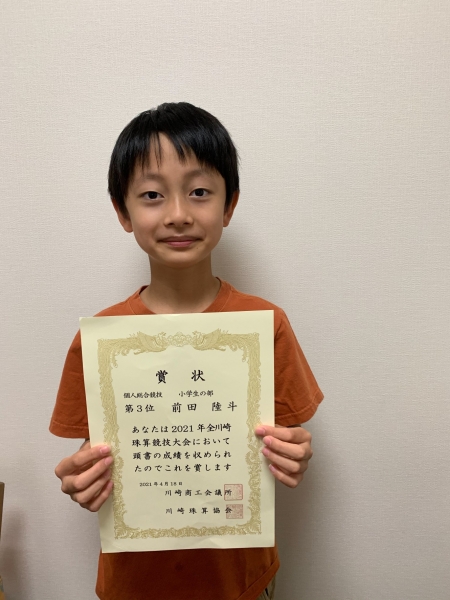 賞状
個人総合競技 小学生の部
第3位 前田 陸斗
あなたは2021年全川崎
珠算競技大会において
頭書の成績を収められ
たのでこれを賞します
2021年4月18日
川崎商工会議所
川崎珠算協会